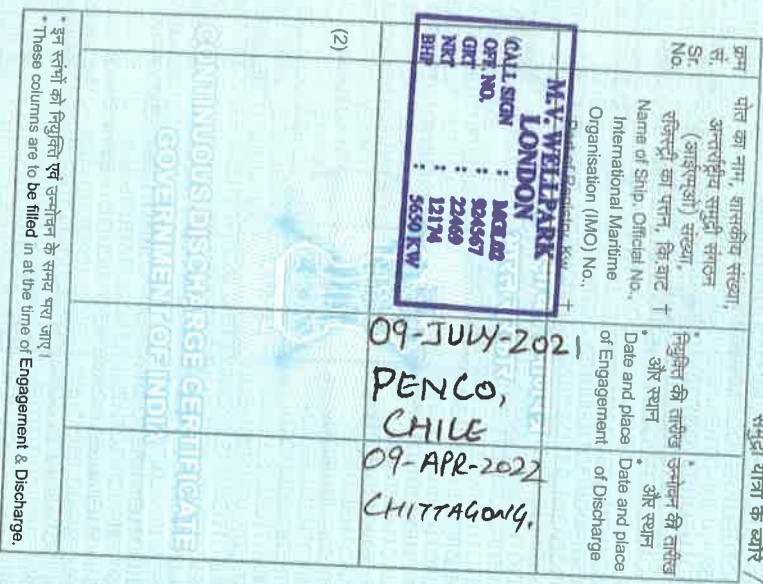 समुद्री यात्रा के ब्यौरे /
क्रम
सं.
Sr.
No.
पोत का नाम, शासकीय संख्या,
अन्तर्राष्ट्रीय समुद्री संगठन
(आईएमओ) संख्या,
रजिस्ट्री का पत्तन, कि.वाट †
Name of Ship, Official No.,
International Maritime
Organisation (IMO) No.,
Port of Registry, Kw. †
* नियुक्ति की तारीख
और स्थान
* Date and place
of Engagement
* उन्मोचन की तारीख
और स्थान
* Date and place
of Discharge
M.V. WELLPARK
LONDON
CALL SIGN :
OFF. NO. : 924567
GRT : 22469
NRT : 12174
BHP : 5650 KW
09-JULY-2021
PENCO,
CHILE
09-APR-2022
CHITTAGONG.
(2)
CONTINUOUS DISCHARGE CERTIFICATE
GOVERNMENT OF INDIA
* इन स्तंभों को नियुक्ति एवं उन्मोचन के समय भरा जाए।
* These columns are to be filled in at the time of Engagement & Discharge.